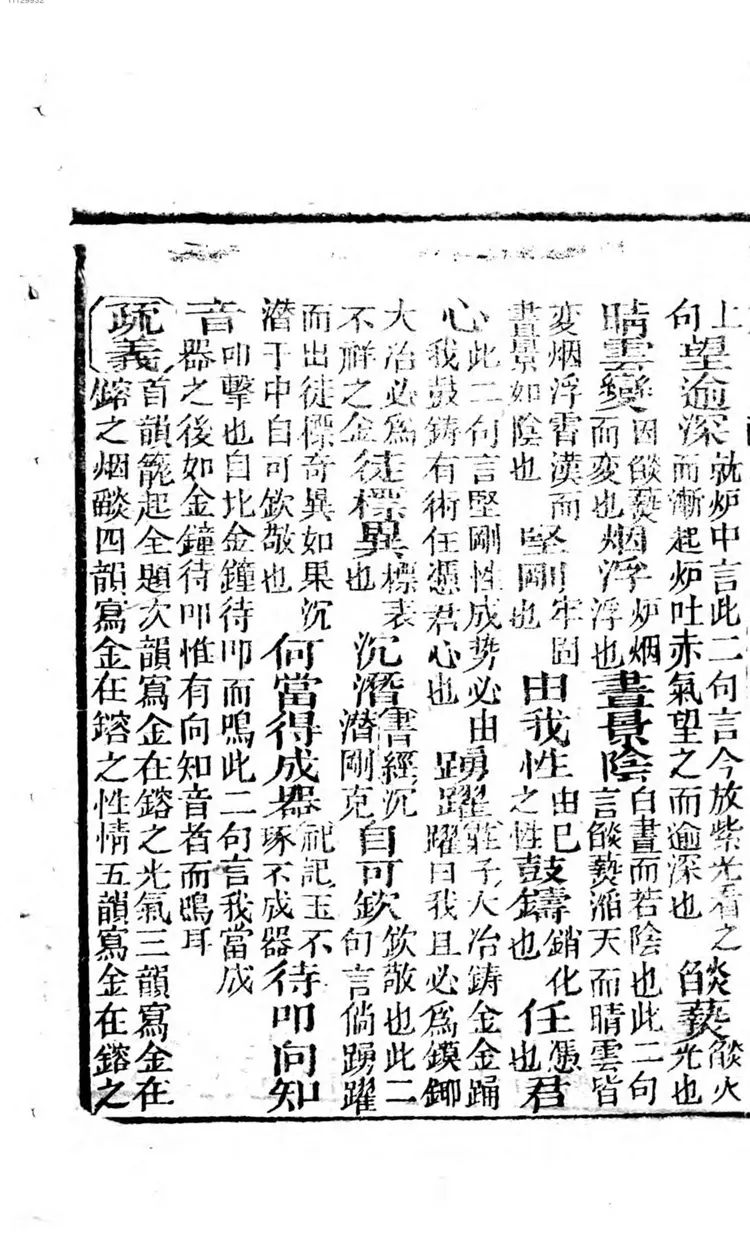 上句望逾深就炉中言此二句言今放紫光看之而漸起炉吐赤氣望之而逾深也焰爇燄火光也
晴雲變因燄爇而変也烟浮炉烟浮也晝景陰白晝而若陰也此二句言燄爇滔天而晴雲皆
変烟浮霄漢而晝景如陰也堅剛牢固堅剛也由我性由巳之性鼓鑄銷化也任憑也君
心此二句言堅剛性成势必由我鼓鋳有術任憑君心也踴躍莊子大冶鋳金金踊躍曰我且必為鏌鎁
大冶必為不祥之金徒標異標表也沉潛書經沉潜剛克自可欽欽敬也此二句言倘踴躍
而出徒標奇異如果沉潜于中自可欽敬也何當得成器礼記玉不琢不成器待叩向知
音叩擊也自比金鐘待叩而鳴此二句言我當成器之後如金鐘待叩惟有向知音者而鳴耳
疏義首韻籠起全題次韻寫金在鎔之光氣三韻寫金在鎔之烟燄四韻寫金在鎔之性情五韻寫金在鎔之